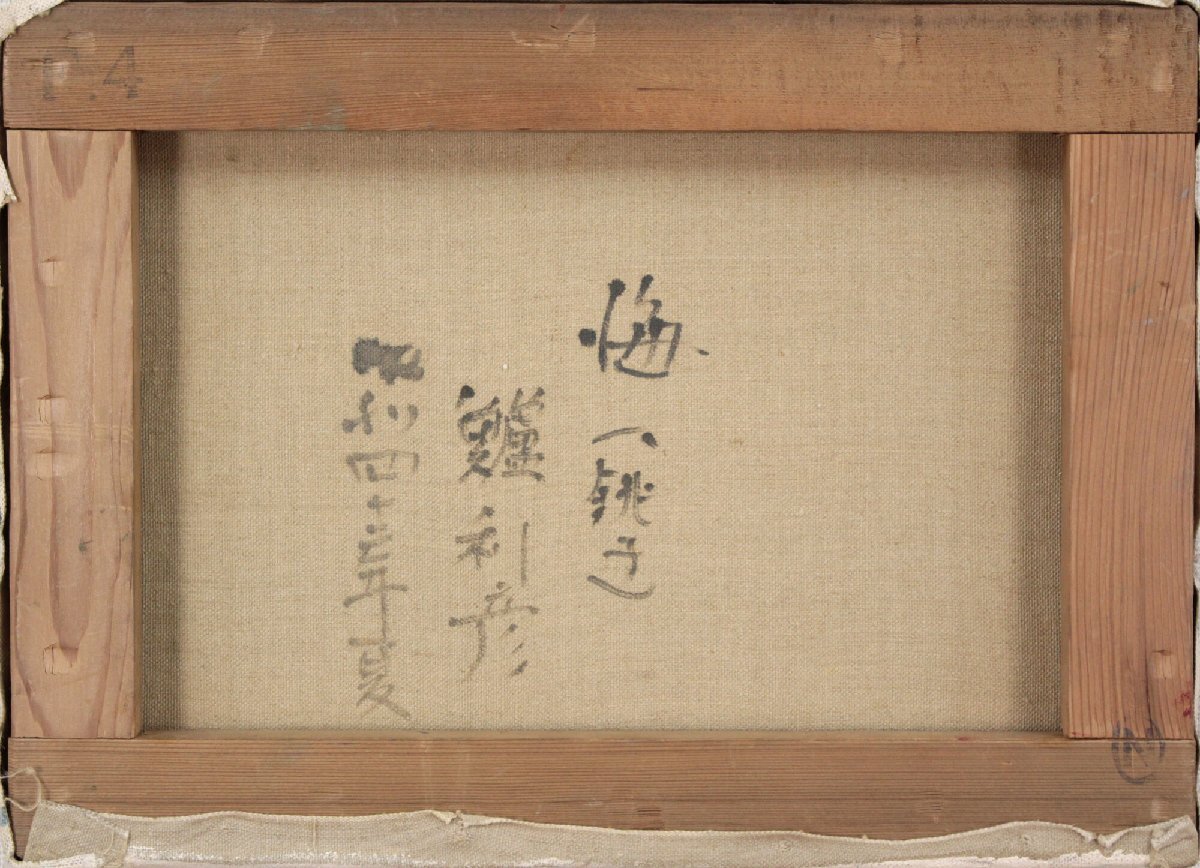 P.4
海(銚子)
鱸利彦
昭和四十三年夏